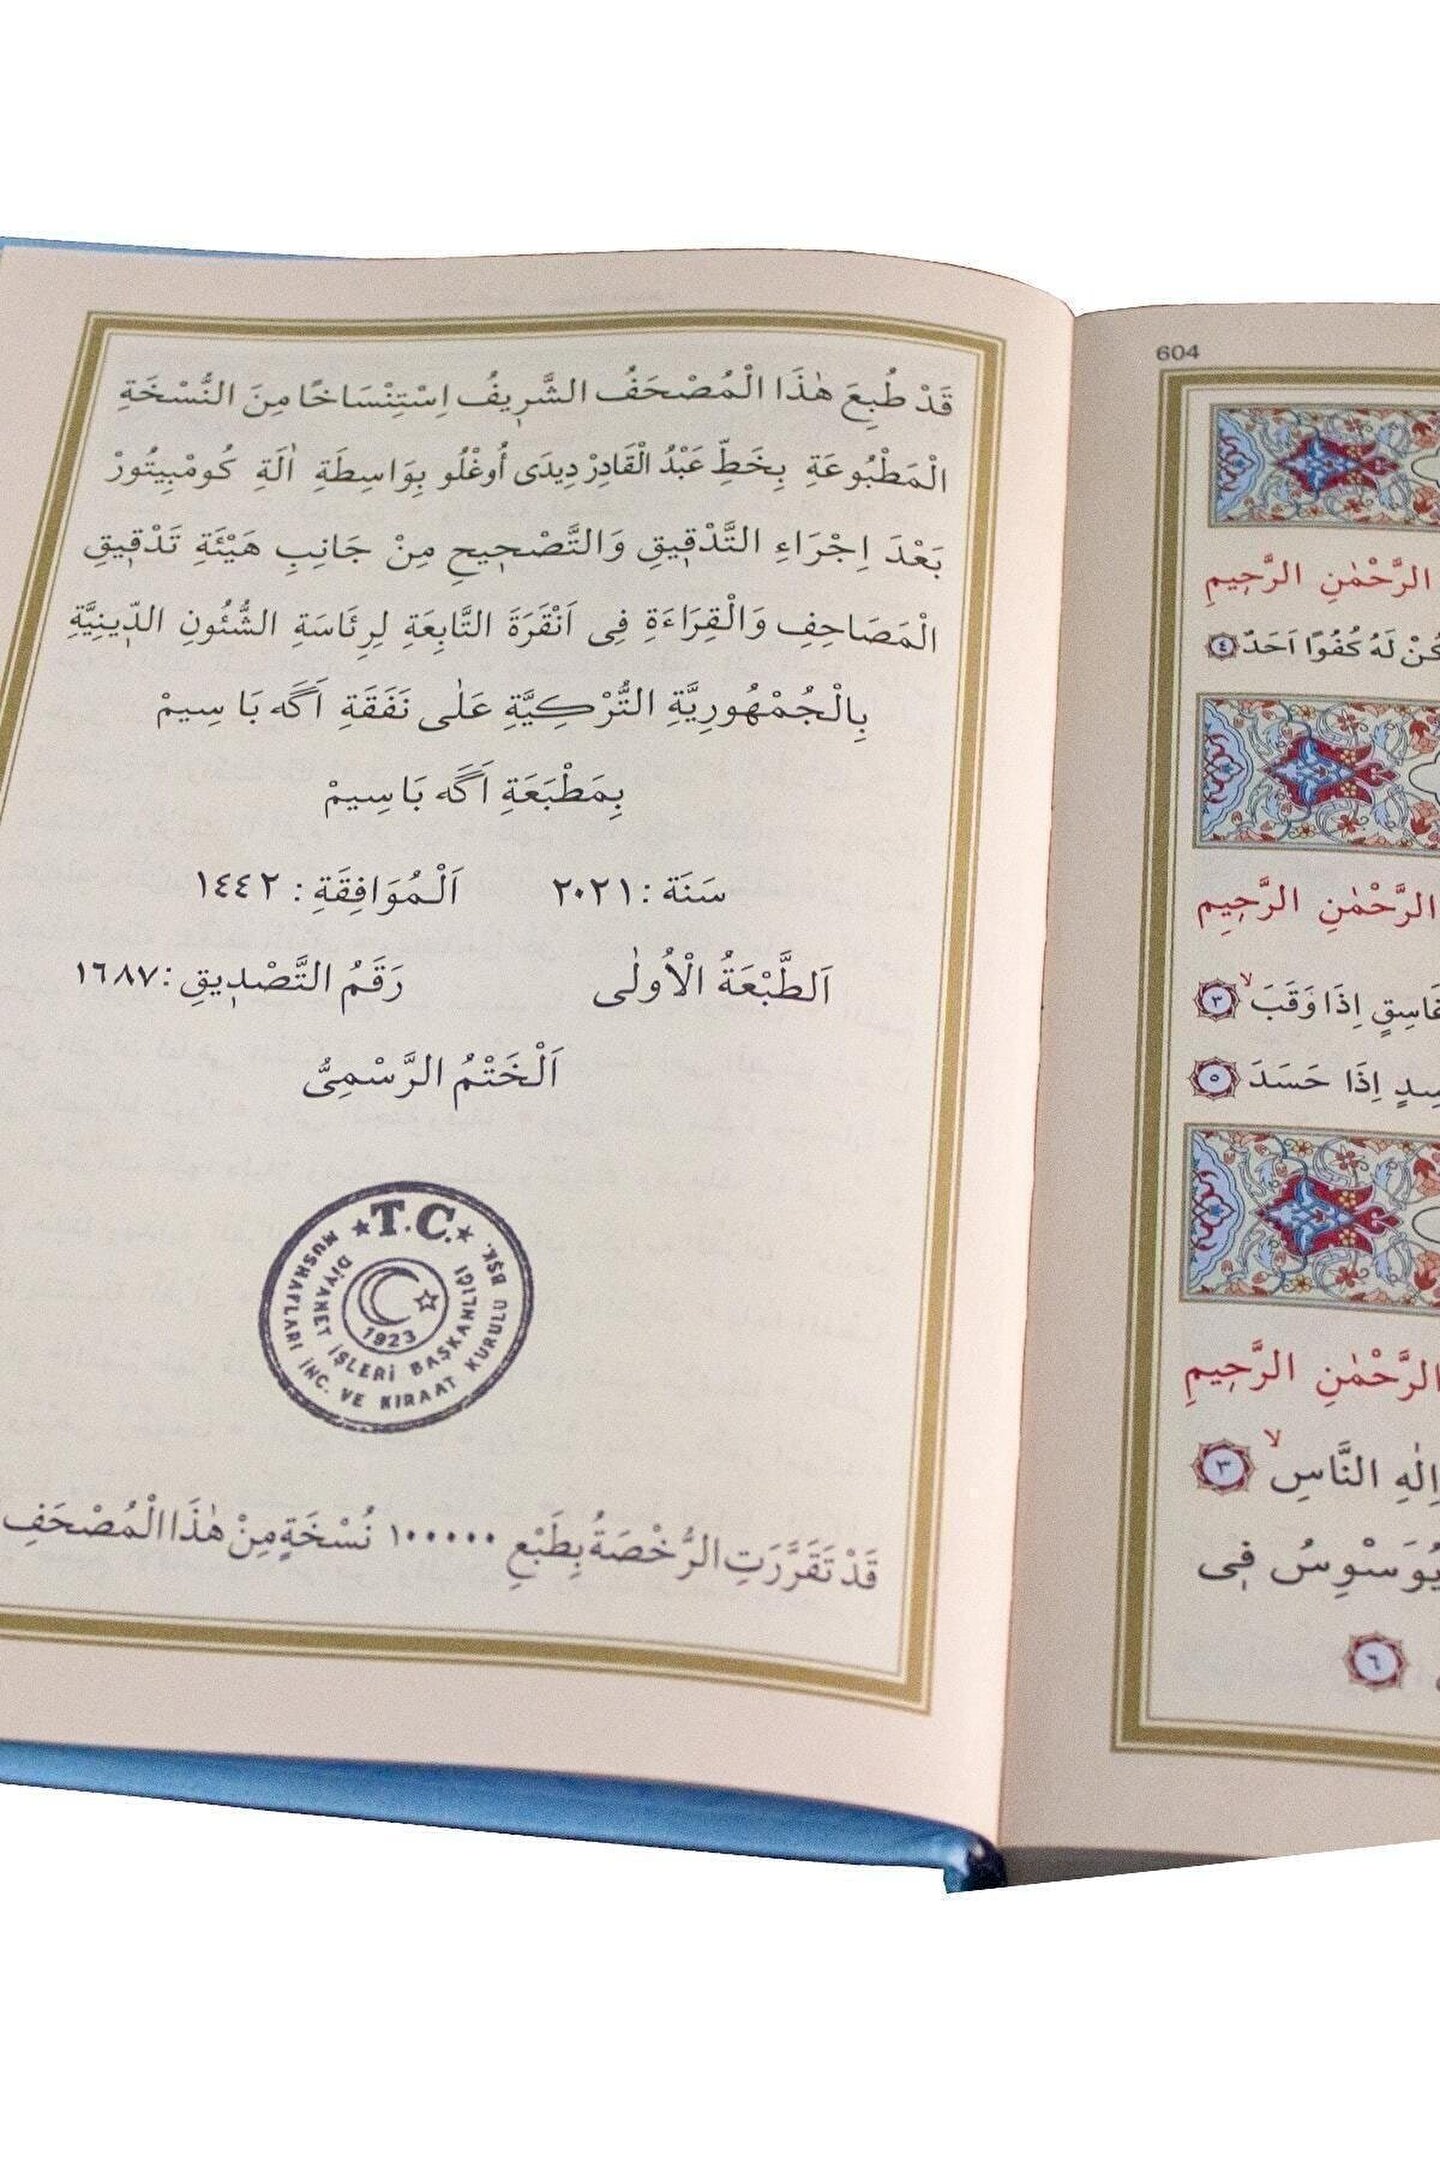 قَدْ طُبِعَ هٰذَا الْمُصْحَفُ الشَّرِيفُ اِسْتِنْسَاخًا مِنَ النُّسْخَةِ
الْمَطْبُوعَةِ بِخَطِّ عَبْدُ الْقَادِرْ دِيدَى أُوغْلُو بِوَاسِطَةِ اٰلَةِ كُومْبِيتُورْ
بَعْدَ اِجْرَاءِ التَّدْقِيقِ وَالتَّصْحِيحِ مِنْ جَانِبِ هَيْئَةِ تَدْقِيقِ
الْمَصَاحِفِ وَالْقِرَاءَةِ فِى اَنْقَرَةَ التَّابِعَةِ لِرِئَاسَةِ الشُّئُونِ الدِّينِيَّةِ
بِالْجُمْهُورِيَّةِ التُّرْكِيَّةِ عَلٰى نَفَقَةِ اَگَه بَاسِيمْ
بِمَطْبَعَةِ اَگَه بَاسِيمْ
سَنَة : ٢٠٢١ اَلْمُوَافِقَةِ : ١٤٤٢
اَلطَّبْعَةُ الْاُولٰى رَقَمُ التَّصْدِيقِ : ١٦٨٧
اَلْخَتْمُ الرَّسْمِىُّ
★ T.C. ★
MUSHAFLARI İNC. VE KIRAAT KURULU BŞK.
DİYANET İŞLERİ BAŞKANLIĞI
1923
قَدْ تَقَرَّرَتِ الرُّخْصَةُ بِطَبْعِ ١٠٠٠٠٠ نُسْخَةٍ مِنْ هٰذَا الْمُصْحَفِ
604
الرَّحْمٰنِ الرَّحِيمِ
لَهُ كُفُوًا اَحَدٌ ٤
الرَّحْمٰنِ الرَّحِيمِ
اِذَا وَقَبَ ٣
اِذَا حَسَدَ ٥
الرَّحْمٰنِ الرَّحِيمِ
اِلٰهِ النَّاسِ ٣
يُوَسْوِسُ فِى
٦